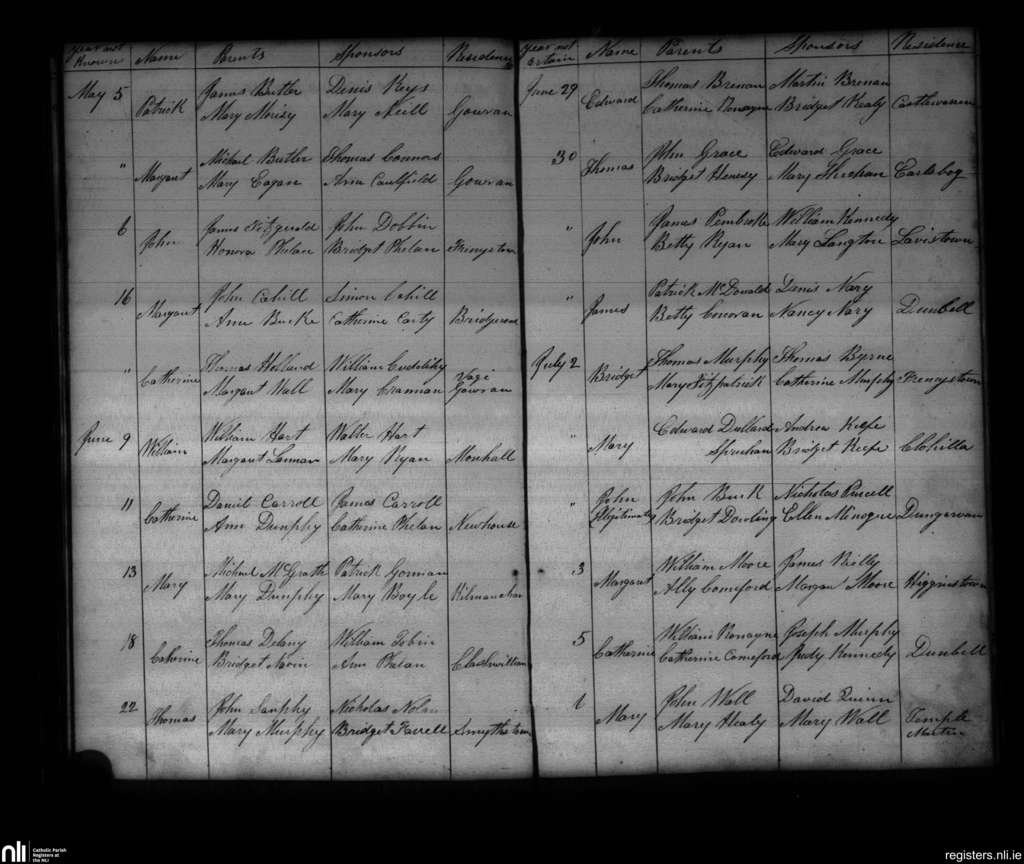 Year not Known Name Parents Sponsors Residence
May 5 Patrick James Butler Denis Keys Gowran
Mary Morisy Mary Neill
" Margaret Michael Butler Thomas Connors Gowran
Mary Eagan Ann Caulfield
6 John James Fitzgerald John Dobbin Freneystown
Honora Phelan Bridget Phelan
16 Margaret John Cahill Simon Cahill
Ann Burke Catherine Carty
" Catherine Thomas Holland William
Margaret Wall Mary Gowran
June 9 William William Hart Walter Hart Monhall
Margaret Lannan Mary Ryan
11 Catherine Daniel Carroll James Carroll Newhouse
Ann Dunphy Catherine Phelan
13 Mary Michael McGrath Patrick Gorman
Mary Dunphy Mary Boyle
18 Catherine Thomas Delany William Tobin
Bridget Ann Phelan
22 Thomas John Nicholas Nolan Smythstown
Mary Murphy Bridget Farrell
Year not certain Name Parents Sponsors Residence
June 29 Edward Thomas Brenan Martin Brenan Castlewarren
Catherine Ronayne Bridget Healy
30 Thomas John Grace Edward Grace Earlsbog
Bridget Henesy Mary Sheehan
" John James Pembroke William Kennedy Lavistown
Betty Ryan Mary Langton
" James Patrick McDonald Denis Nary Dunbell
Betty Conovan Nancy Nary
July 2 Bridget Thomas Murphy Thomas Byrne Freneystown
Mary Fitzpatrick Catherine Murphy
" Mary Edward Dullard Andrew Keefe Clohilla
Spruhan Bridget Keefe
" John John Burk Nicholas Purcell
Illegitimate Bridget Dowling Ellen Minogue Dungarvan
3 Margaret William Moore James Reilly Higginstown
Ally Comeford Margaret Moore
5 Catherine William Ronayne Joseph Murphy Dunbell
Catherine Comeford Judy Kennedy
1 Mary John Wall David Quinn Temple
Mary Healy Mary Wall Martin
nli Catholic Parish Registers at the NLI
registers.nli.ie